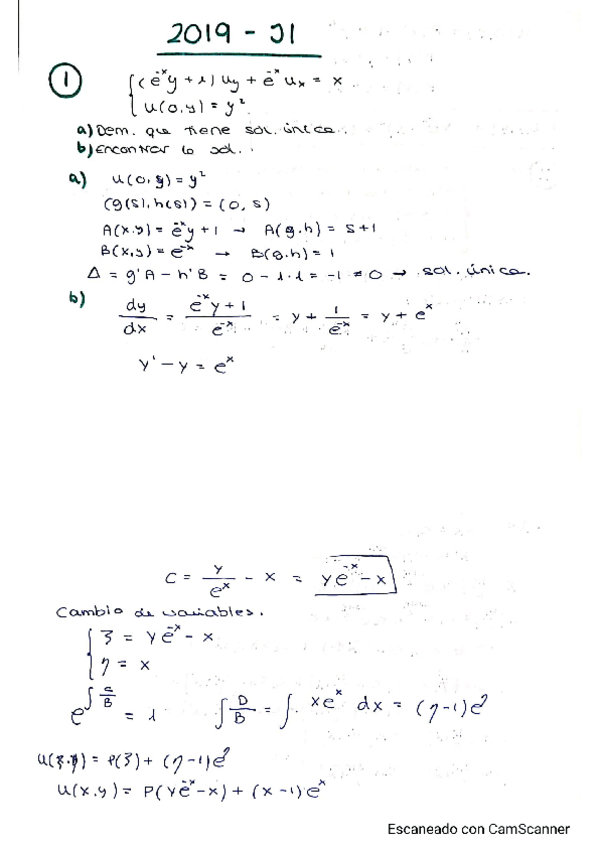 2019 - J1
① { (e⁻ˣy + 1) uy + e⁻ˣ ux = x
u(0,y) = y²
a) Dem. que tiene sol. única.
b) Encontrar la sol.
a) u(0,y) = y²
(g(s), h(s)) = (0, s)
A(x,y) = e⁻ˣy + 1 → A(g,h) = s+1
B(x,y) = e⁻ˣ → B(g,h) = 1
Δ = g'A - h'B = 0 - 1·1 = -1 ≠ 0 → sol. única.
b) dy/dx = (e⁻ˣy + 1)/e⁻ˣ = y + 1/e⁻ˣ = y + eˣ
y' - y = eˣ
C = y/eˣ - x = ye⁻ˣ - x
Cambio de variables.
{ ξ = ye⁻ˣ - x
η = x
e^∫C/B = 1 ∫D/B = ∫ xeˣ dx = (η-1)e^η
u(ξ,η) = P(ξ) + (η-1)e^η
u(x,y) = P(ye⁻ˣ-x) + (x-1)eˣ
Escaneado con CamScanner